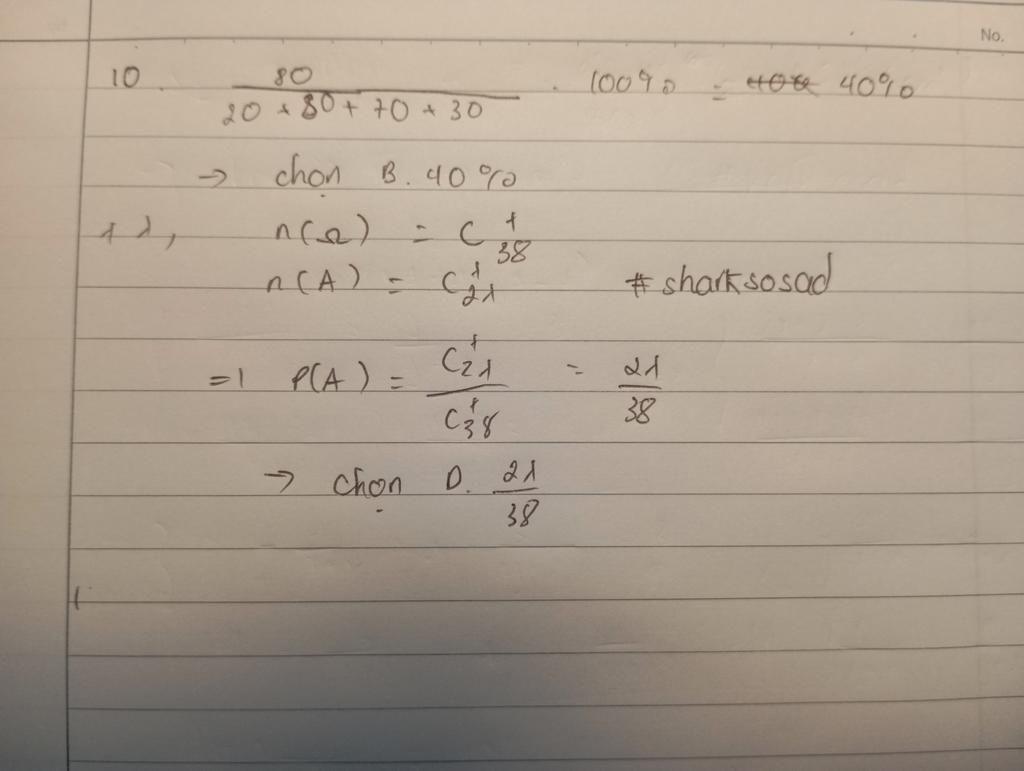 No.
10. 80 / (20 + 80 + 70 + 30) . 100% = 40%
→ chọn B. 40%
11, n(Ω) = C¹₃₈
n(A) = C¹₂₁ #sharksosad
=> P(A) = C¹₂₁ / C¹₃₈ = 21/38
→ chọn D. 21/38